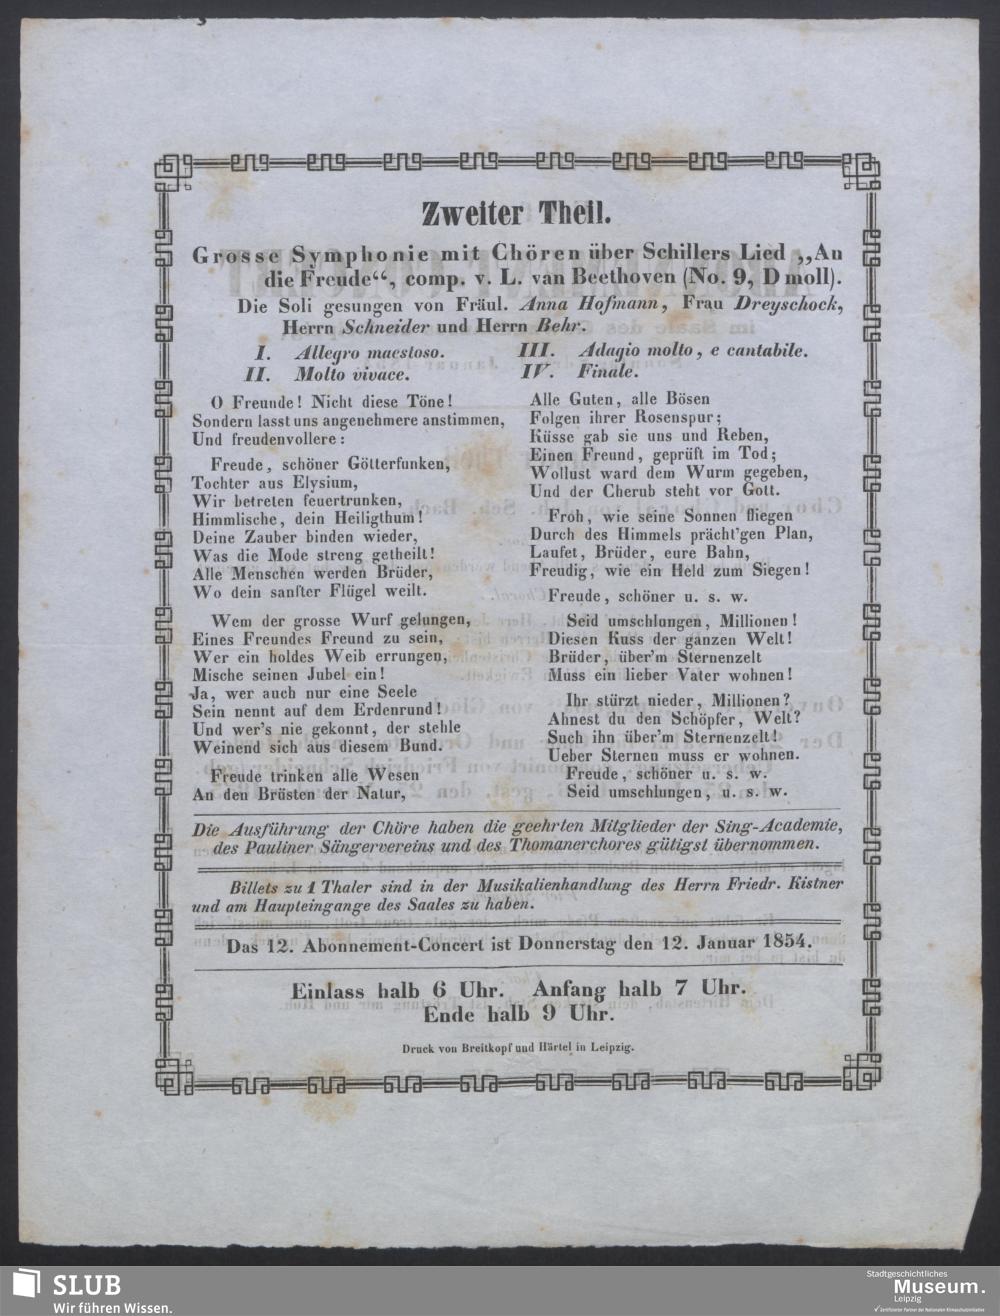 Zweiter Theil.
Grosse Symphonie mit Chören über Schillers Lied „An
die Freude“, comp. v. L. van Beethoven (No. 9, D moll).
Die Soli gesungen von Fräul. Anna Hofmann, Frau Dreyschock,
Herrn Schneider und Herrn Behr.
I. Allegro maestoso.
II. Molto vivace.
III. Adagio molto, e cantabile.
IV. Finale.
O Freunde! Nicht diese Töne!
Sondern lasst uns angenehmere anstimmen,
Und freudenvollere:
Freude, schöner Götterfunken,
Tochter aus Elysium,
Wir betreten feuertrunken,
Himmlische, dein Heiligthum!
Deine Zauber binden wieder,
Was die Mode streng getheilt!
Alle Menschen werden Brüder,
Wo dein sanfter Flügel weilt.
Wem der grosse Wurf gelungen,
Eines Freundes Freund zu sein,
Wer ein holdes Weib errungen,
Mische seinen Jubel ein!
Ja, wer auch nur eine Seele
Sein nennt auf dem Erdenrund!
Und wer's nie gekonnt, der stehle
Weinend sich aus diesem Bund.
Freude trinken alle Wesen
An den Brüsten der Natur,
Alle Guten, alle Bösen
Folgen ihrer Rosenspur;
Küsse gab sie uns und Reben,
Einen Freund, geprüft im Tod;
Wollust ward dem Wurm gegeben,
Und der Cherub steht vor Gott.
Froh, wie seine Sonnen fliegen
Durch des Himmels prächt'gen Plan,
Laufet, Brüder, eure Bahn,
Freudig, wie ein Held zum Siegen!
Freude, schöner u. s. w.
Seid umschlungen, Millionen!
Diesen Kuss der ganzen Welt!
Brüder, über'm Sternenzelt
Muss ein lieber Vater wohnen!
Ihr stürzt nieder, Millionen?
Ahnest du den Schöpfer, Welt?
Such ihn über'm Sternenzelt!
Ueber Sternen muss er wohnen.
Freude, schöner u. s. w.
Seid umschlungen, u. s. w.
Die Ausführung der Chöre haben die geehrten Mitglieder der Sing-Academie,
des Pauliner Sängervereins und des Thomanerchores gütigst übernommen.
Billets zu 1 Thaler sind in der Musikalienhandlung des Herrn Friedr. Kistner
und am Haupteingange des Saales zu haben.
Das 12. Abonnement-Concert ist Donnerstag den 12. Januar 1854.
Einlass halb 6 Uhr. Anfang halb 7 Uhr.
Ende halb 9 Uhr.
Druck von Breitkopf und Härtel in Leipzig.
SLUB
Wir führen Wissen.
Stadtgeschichtliches
Museum.
Leipzig
Zertifizierter Partner der Nationalen Klimaschutzinitiative